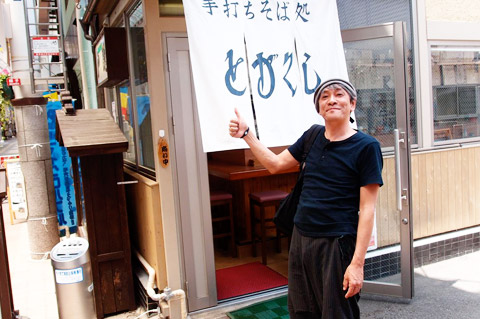 手打ちそば処
とがくし